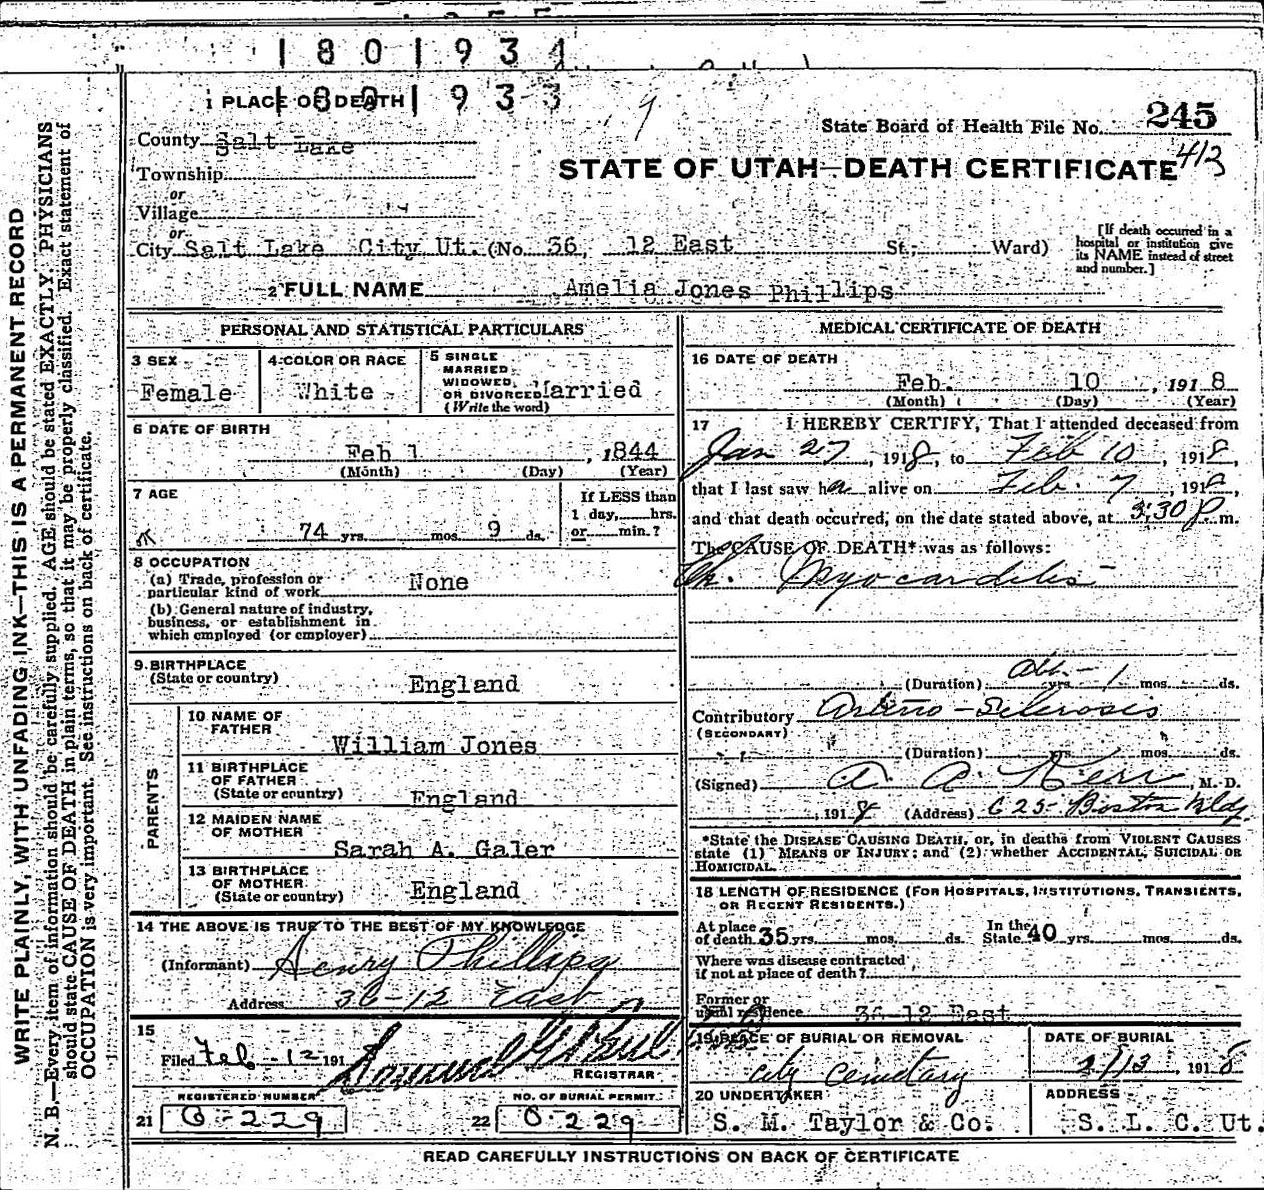 1801934
1801933
1 PLACE OF DEATH
County Salt Lake
State Board of Health File No. 245
413
STATE OF UTAH—DEATH CERTIFICATE
Township
or
Village
or
City Salt Lake City Ut. (No. 36, 12 East St.; Ward)
[If death occurred in a
hospital or institution give
its NAME instead of street
and number.]
2 FULL NAME Amelia Jones Phillips
PERSONAL AND STATISTICAL PARTICULARS
3 SEX
Female
4 COLOR OR RACE
White
5 SINGLE
MARRIED
WIDOWED,
OR DIVORCED Married
(Write the word)
6 DATE OF BIRTH
Feb 1, 1844
(Month) (Day) (Year)
7 AGE
74 yrs. mos. 9 ds.
If LESS than
1 day, hrs.
or min.?
8 OCCUPATION
(a) Trade, profession or
particular kind of work None
(b) General nature of industry,
business, or establishment in
which employed (or employer)
9 BIRTHPLACE
(State or country) England
PARENTS
10 NAME OF
FATHER
William Jones
11 BIRTHPLACE
OF FATHER
(State or country) England
12 MAIDEN NAME
OF MOTHER
Sarah A. Galer
13 BIRTHPLACE
OF MOTHER
(State or country) England
14 THE ABOVE IS TRUE TO THE BEST OF MY KNOWLEDGE
(Informant) Henry Phillips
Address 36-12 East
15
Filed Feb-12 191
REGISTRAR
REGISTERED NUMBER
21 O-229
NO. OF BURIAL PERMIT
22 O-229
MEDICAL CERTIFICATE OF DEATH
16 DATE OF DEATH
Feb. 10, 1918
(Month) (Day) (Year)
17 I HEREBY CERTIFY, That I attended deceased from
Jan 27, 1918, to Feb 10, 1918,
that I last saw her alive on Feb. 7, 1918,
and that death occurred, on the date stated above, at 3:30 P m.
The CAUSE OF DEATH* was as follows:
Ch. Myocarditis
(Duration) abt - yrs. 1 mos. ds.
Contributory Arterio-Sclerosis
(SECONDARY)
(Duration) yrs. mos. ds.
(Signed) A. A. Kerr, M. D.
, 1918 (Address) 625 Boston Bldg
*State the DISEASE CAUSING DEATH, or, in deaths from VIOLENT CAUSES
state (1) MEANS OF INJURY; and (2) whether ACCIDENTAL, SUICIDAL OR
HOMICIDAL.
18 LENGTH OF RESIDENCE (FOR HOSPITALS, INSTITUTIONS, TRANSIENTS,
OR RECENT RESIDENTS.)
At place
of death 35 yrs. mos. ds. In the State 40 yrs. mos. ds.
Where was disease contracted
if not at place of death?
Former or
usual residence 36-12 East
19 PLACE OF BURIAL OR REMOVAL
City Cemetary
DATE OF BURIAL
2/13, 1918
20 UNDERTAKER
S. M. Taylor & Co.
ADDRESS
S. L. C. Ut.
READ CAREFULLY INSTRUCTIONS ON BACK OF CERTIFICATE
WRITE PLAINLY, WITH UNFADING INK—THIS IS A PERMANENT RECORD
N. B.—Every item of information should be carefully supplied. AGE should be stated EXACTLY. PHYSICIANS
should state CAUSE OF DEATH in plain terms, so that it may be properly classified. Exact statement of
OCCUPATION is very important. See instructions on back of certificate.